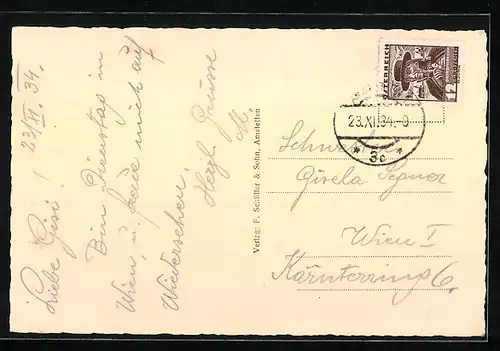 23/XI. 34.
Liebe Gisi!
Bin Dienstag in
Wien u. freue mich auf
Wiedersehen.
Herzl. Grüsse
M.
Verlag: F. Schüller & Sohn, Amstetten
ÖSTERREICH
12
23.XI.34.-9
* 3c *
Schwester
Gisela
Wien I
Kärntnerring 6.